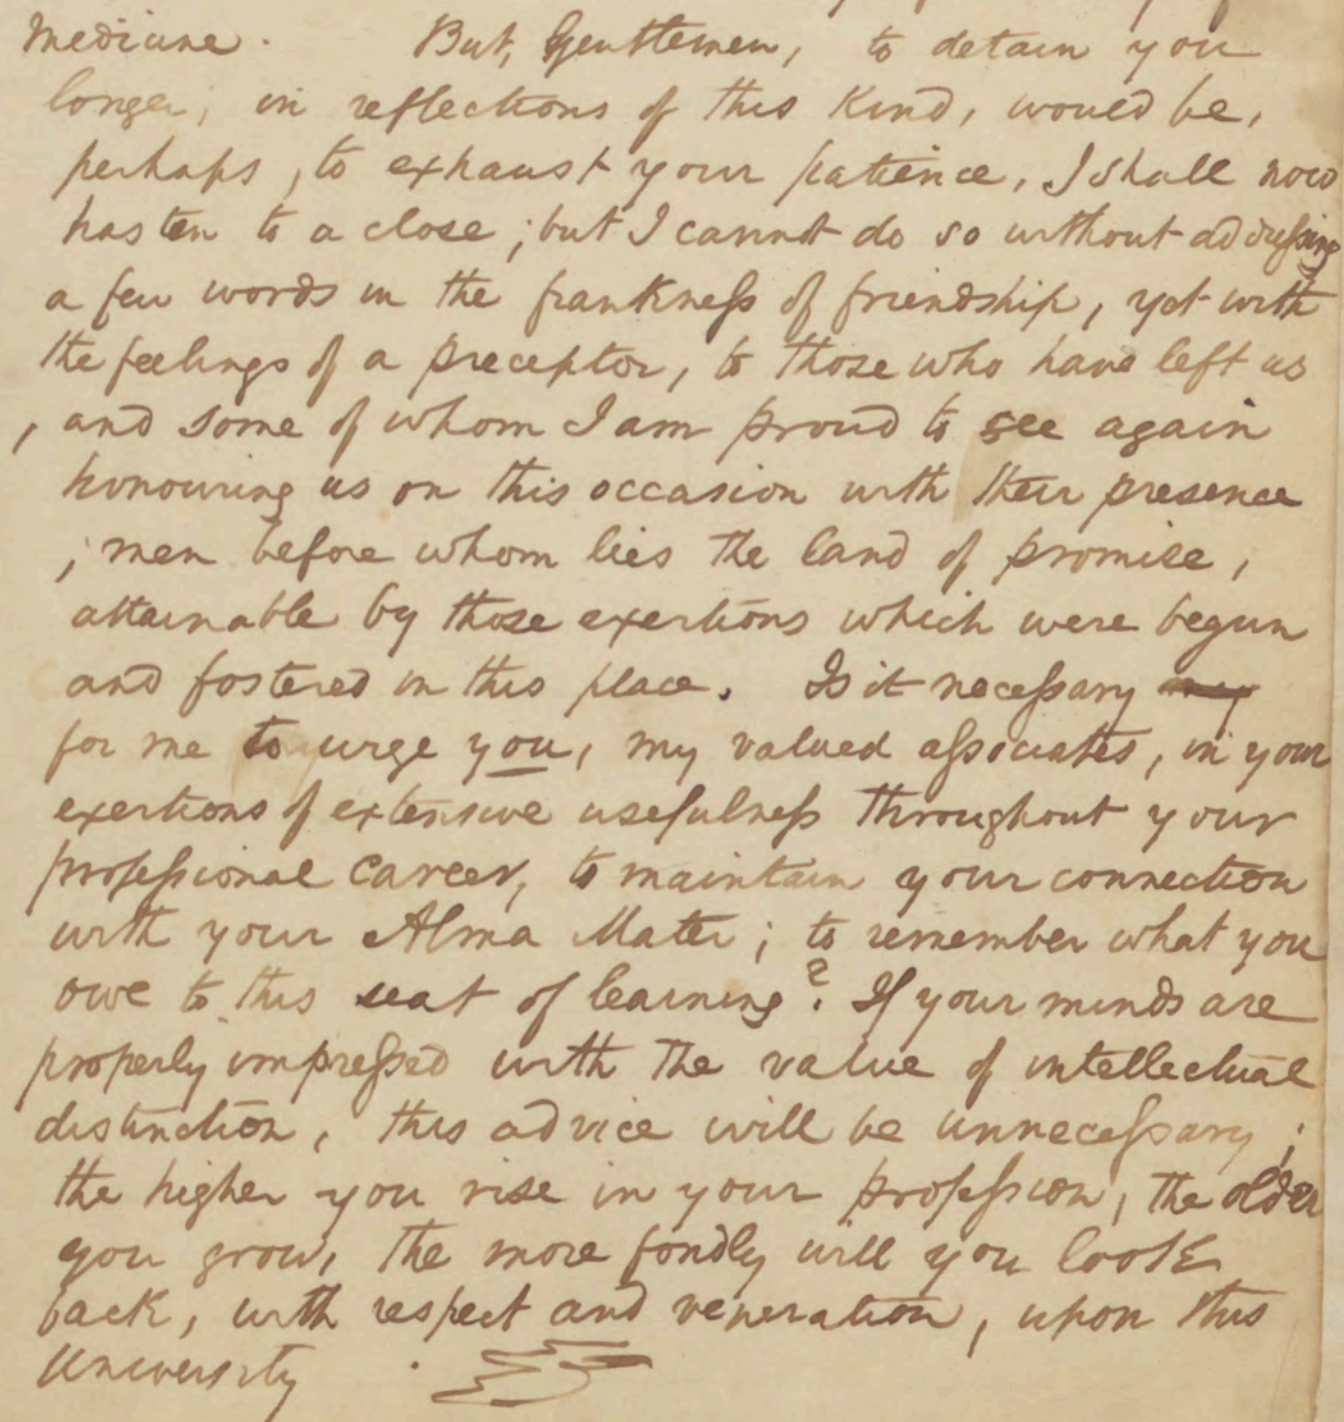 Medicine. But, Gentlemen, to detain you
longer, in reflections of this kind, would be,
perhaps, to exhaust your patience, I shall now
hasten to a close; but I cannot do so without addressing
a few words in the frankness of friendship, yet with
the feelings of a preceptor, to those who have left us
, and some of whom I am proud to see again
honouring us on this occasion with their presence
; men before whom lies the land of promise,
attainable by those exertions which were begun
and fostered in this place. Is it necessary
for me to urge you, my valued associates, in your
exertions of extensive usefulness throughout your
professional career, to maintain your connection
with your Alma Mater; to remember what you
owe to this seat of learning? If your minds are
properly impressed with the value of intellectual
distinction, this advice will be unnecessary;
the higher you rise in your profession, the older
you grow, the more fondly will you look
back, with respect and veneration, upon this
University.